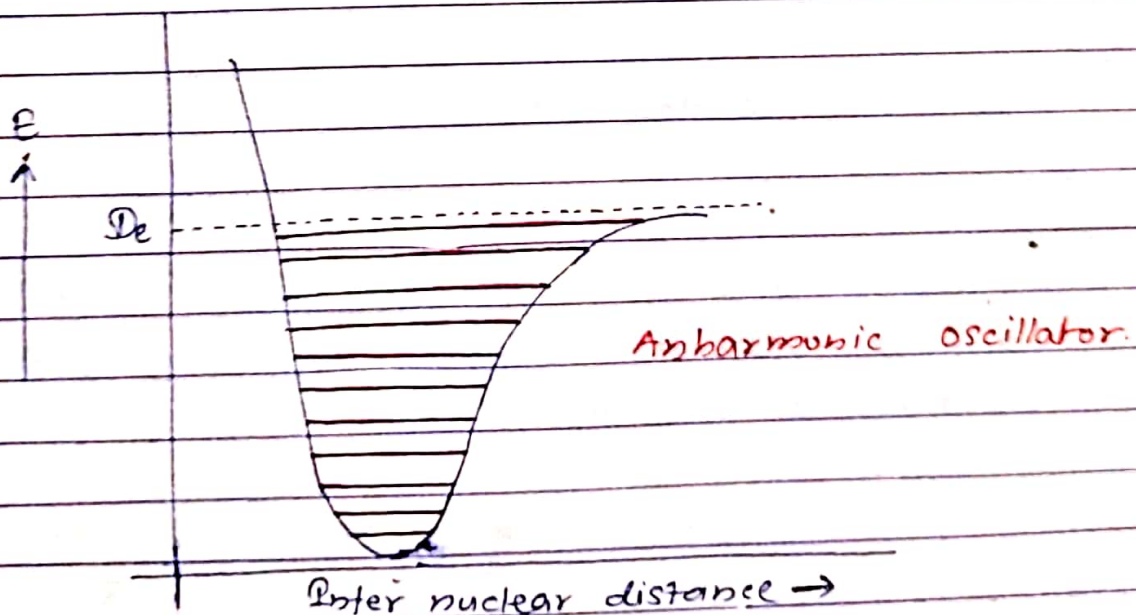 E
De
Anharmonic oscillator.
Inter nuclear distance →